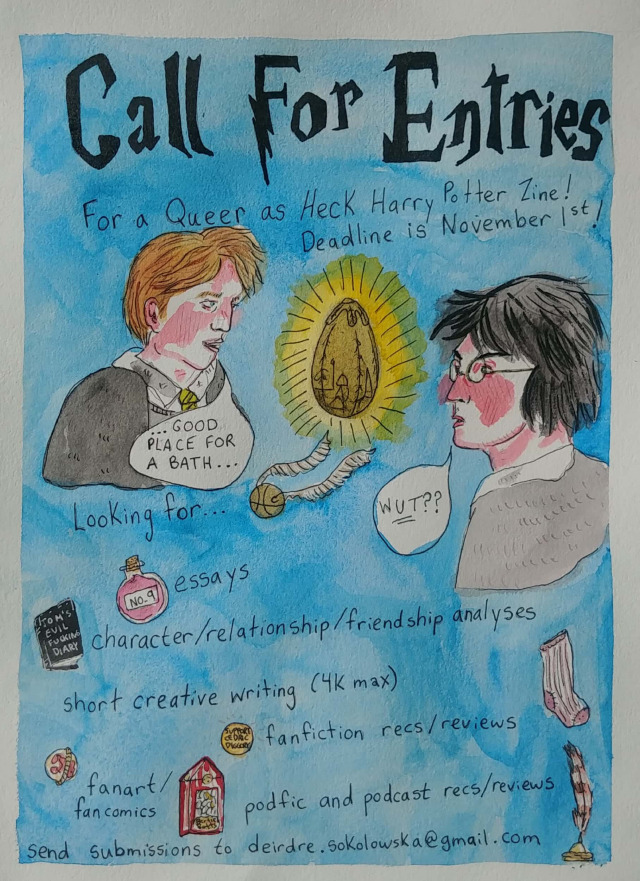 Call For Entries
For a Queer as Heck Harry Potter Zine!
Deadline is November 1st!
...GOOD
PLACE FOR
A BATH...
WUT??
Looking for...
NO. 9
essays
TOM'S
EVIL
FUCKING
DIARY
character/relationship/friendship analyses
short creative writing (4K max)
SUPPORT
CEDRIC
DIGGORY
fanfiction recs/reviews
fanart/
fancomics
podfic and podcast recs/reviews
send submissions to deirdre.sokolowska@gmail.com